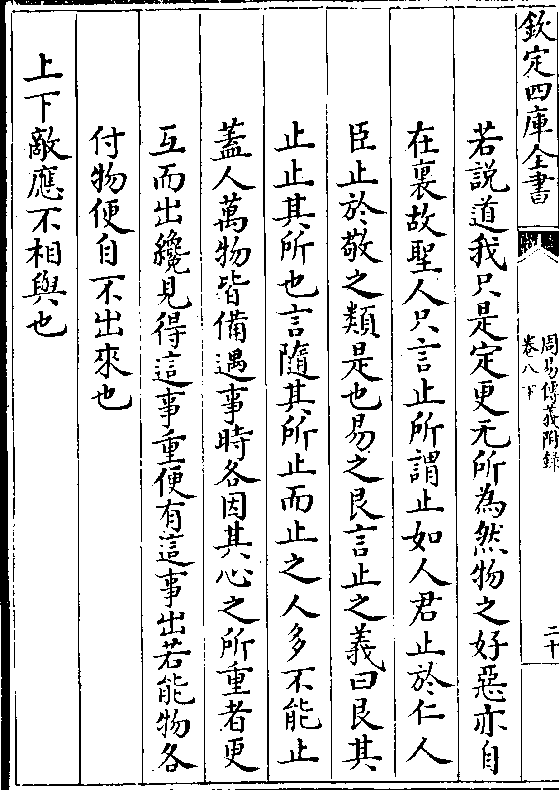 欽定四庫全書
周易傳義附録
卷八下
二十
若說道我只是定更无所為然物之好惡亦自
在裏故聖人只言止所謂止如人君止於仁人
臣止於敬之類是也易之艮言止之義曰艮其
止止其所也言隨其所止而止之人多不能止
蓋人萬物皆備遇事時各因其心之所重者更
互而出纔見得這事重便有這事出若能物各
付物便自不出來也
上下敵應不相與也